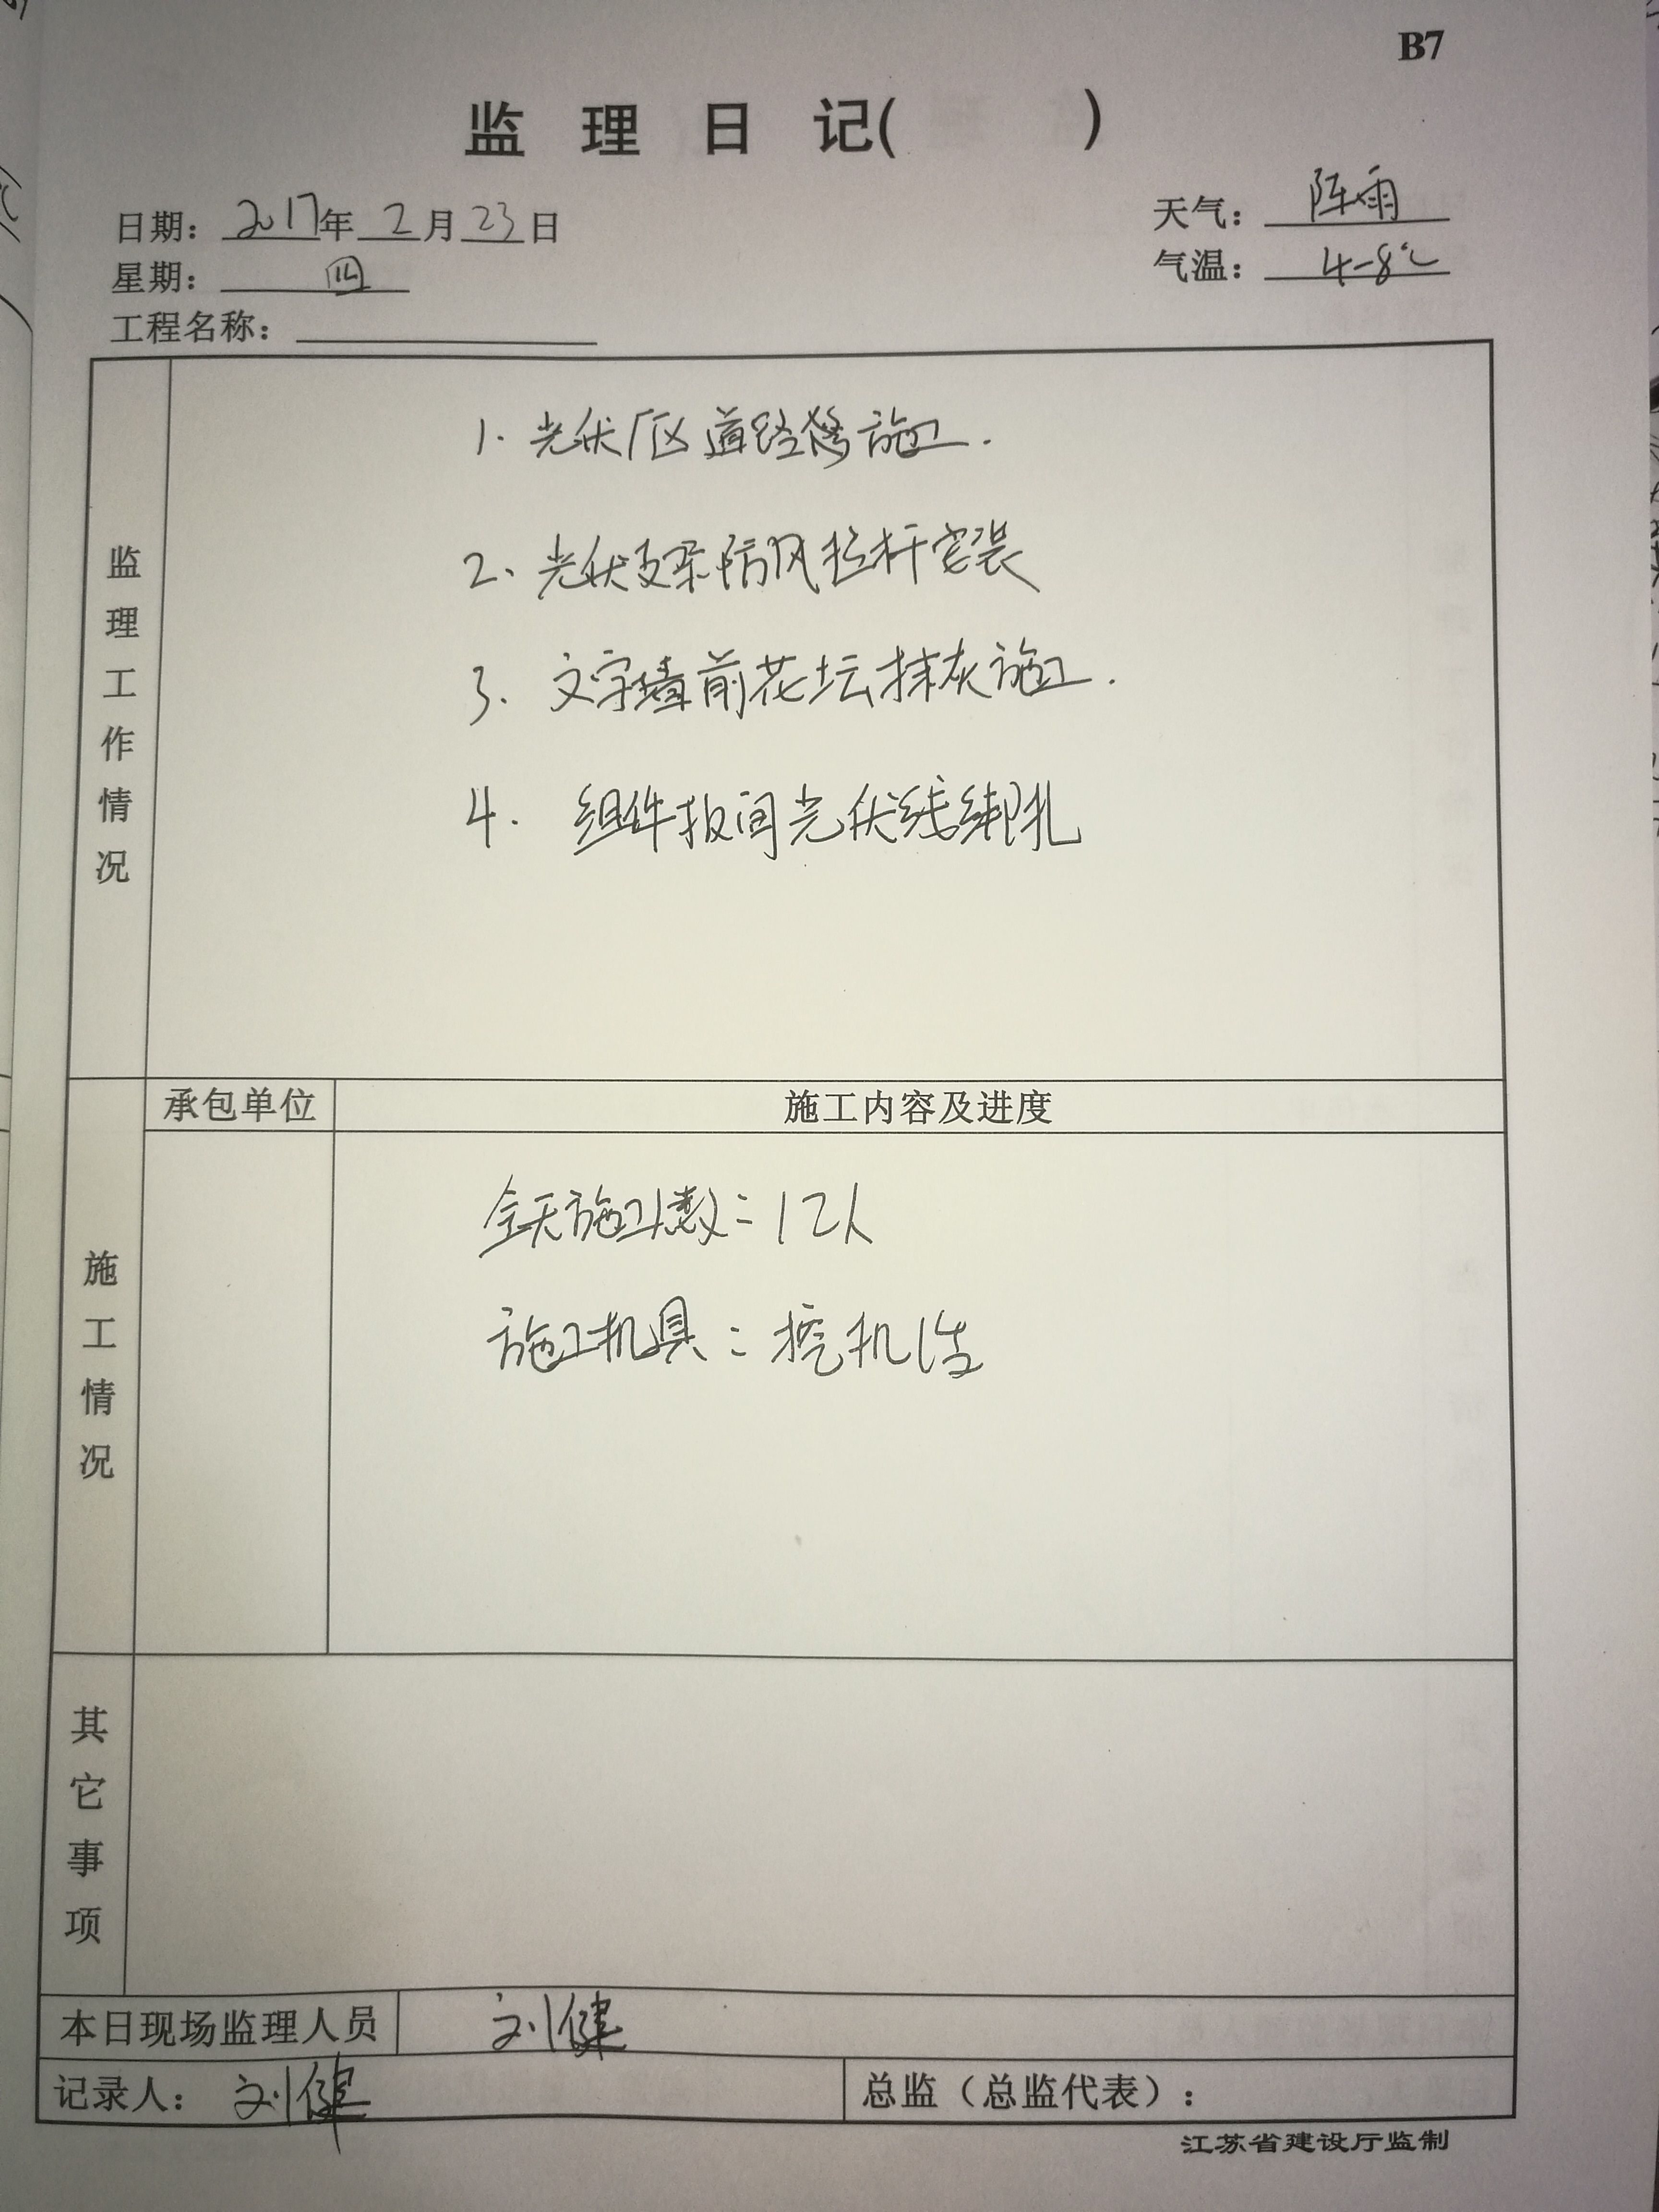 B7
监理日记(    )
日期：2017年2月23日
天气：阵雨
星期：四
气温：4-8℃
工程名称：
监理工作情况
1. 光伏厂区道路修施工.
2. 光伏支架防风拉杆安装
3. 文字墙前花坛抹灰施工.
4. 组件板间光伏线绑扎
承包单位
施工内容及进度
施工情况
今天施工人数：12人
施工机具：挖机1台
其它事项
本日现场监理人员 刘健
记录人：刘健
总监（总监代表）：
江苏省建设厅监制